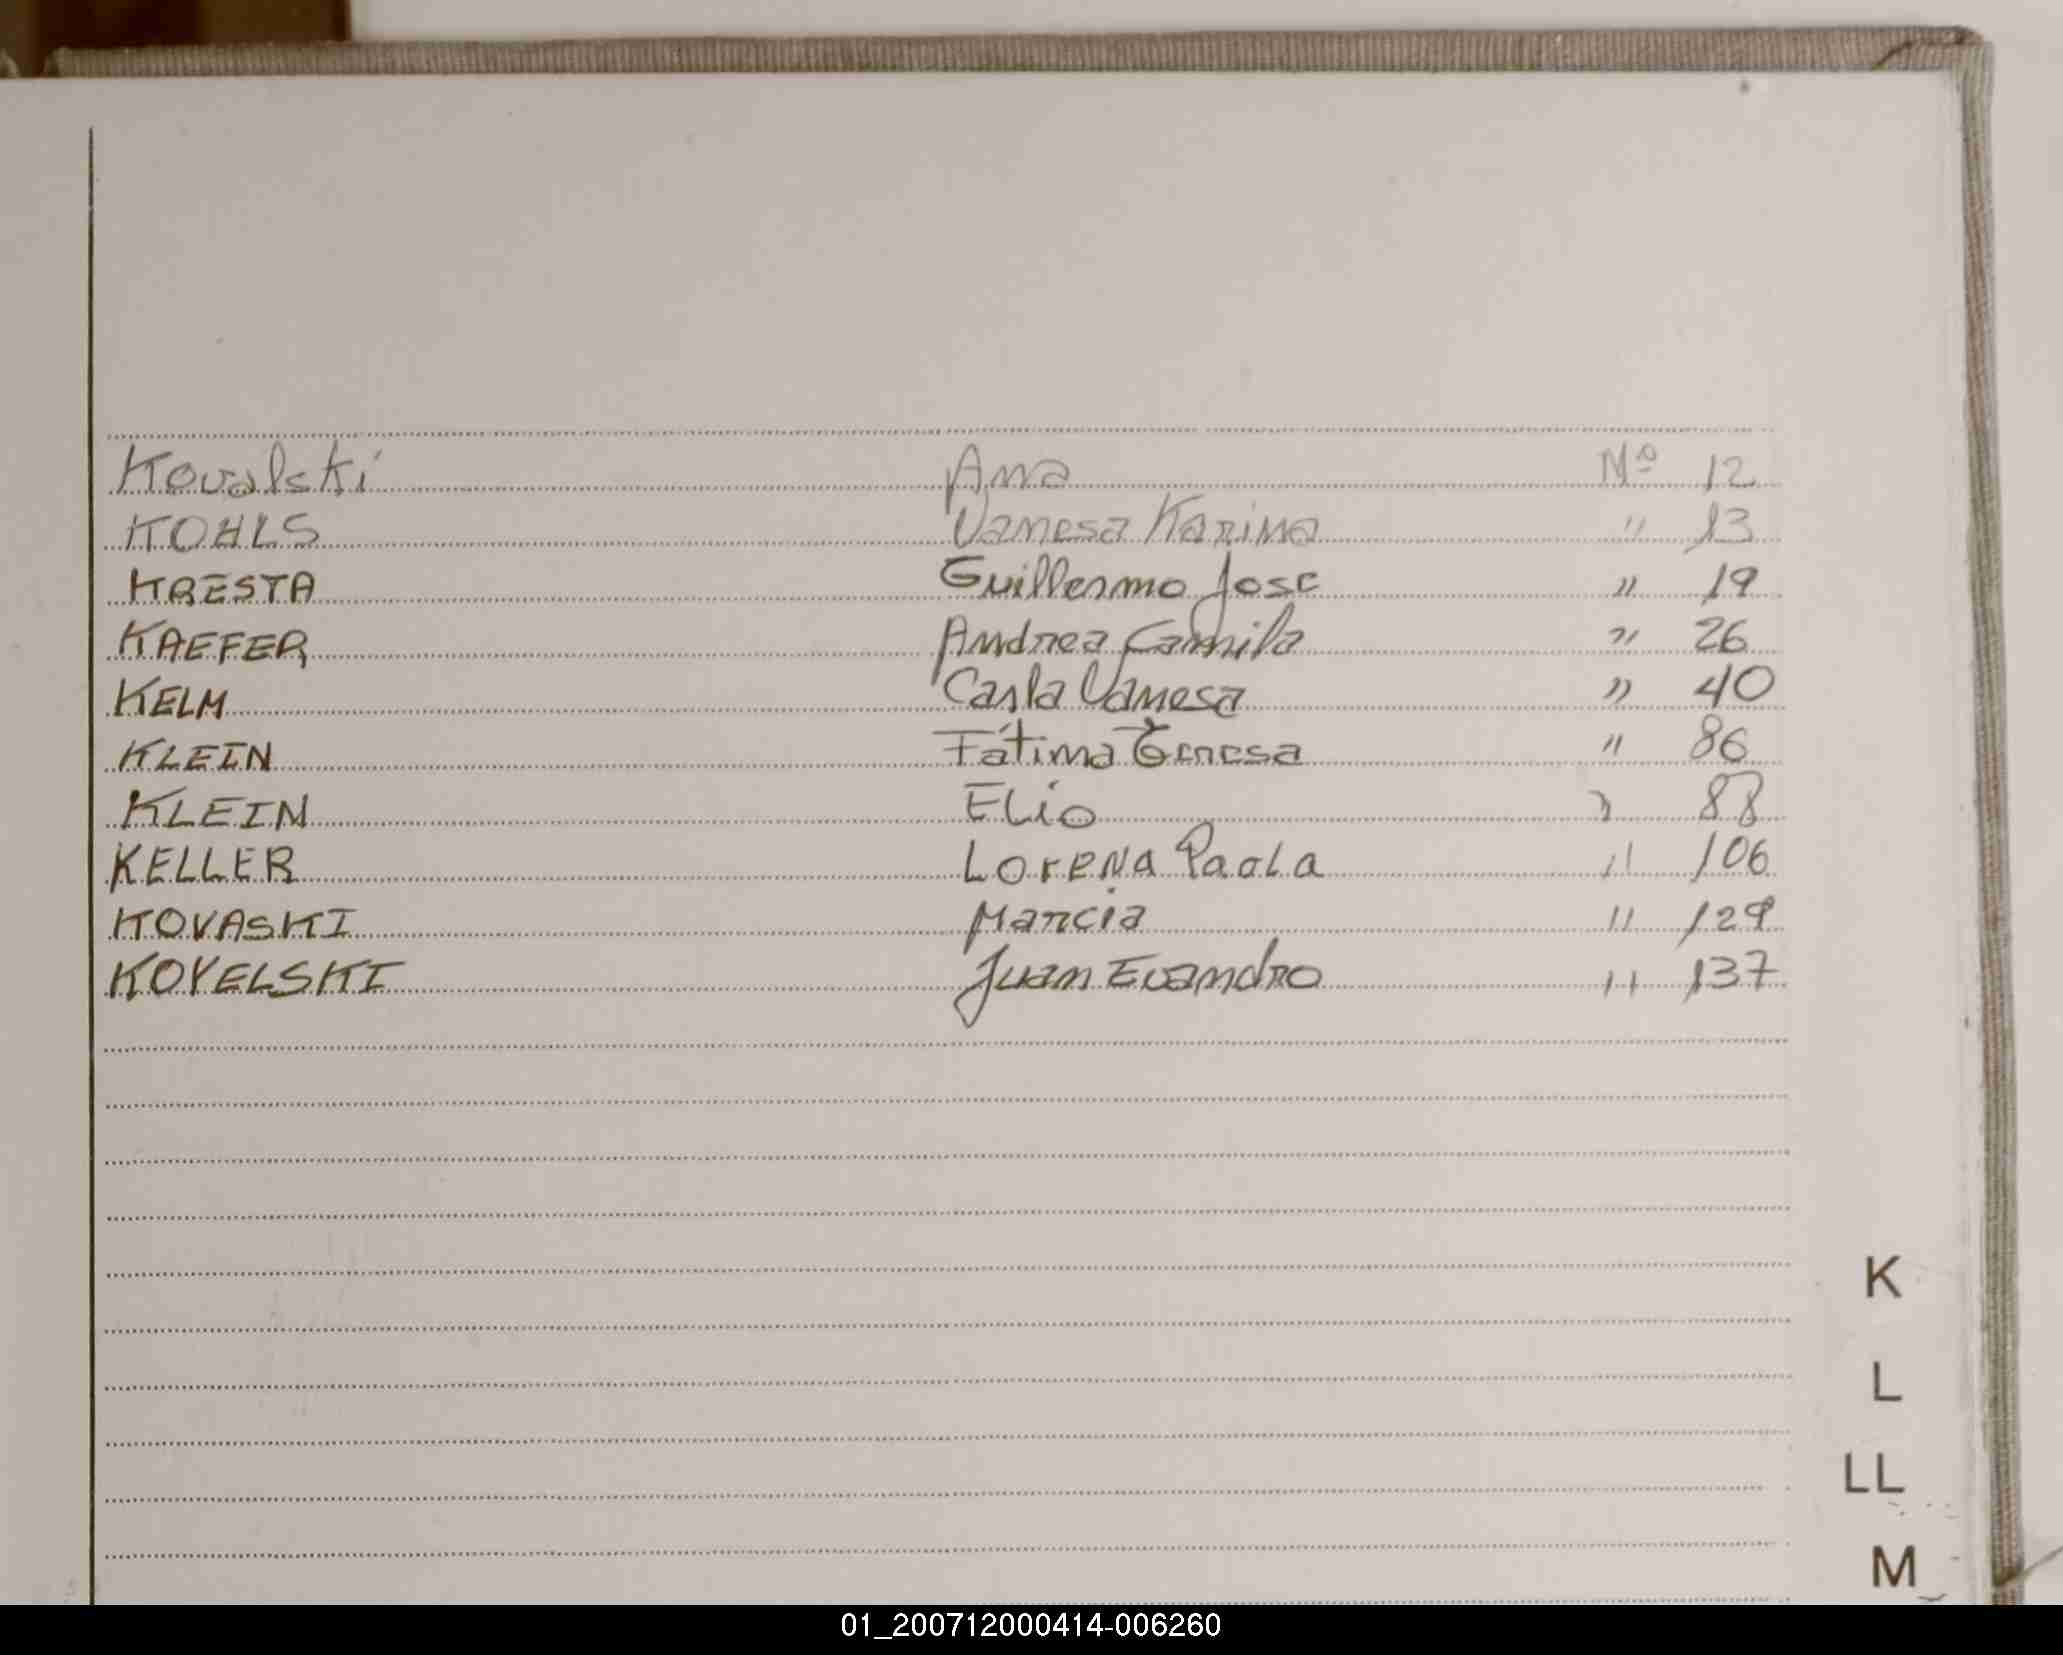 Kovalski Ana Nº 12
KOHLS Vanesa Karina " 13
KRESTA Guillermo Jose " 19
KAEFER Andrea Camila " 26
KELM Carla Vanesa " 40
KLEIN Fátima Teresa " 86
KLEIN Elio " 88
KELLER Lorena Paola " 106
KOVASKI Marcia " 129
KOVELSKI Juan Evandro " 137
K
L
LL
M
01_200712000414-006260